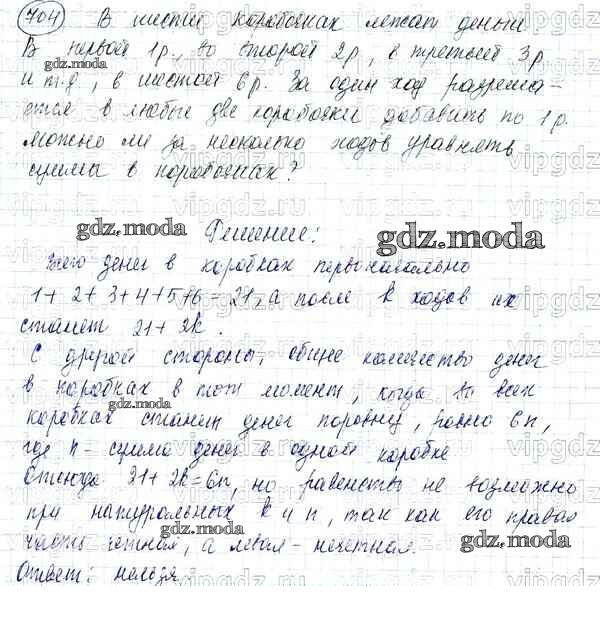 704 В шести коробочках лежат деньги
В первой 1р., во второй 2р, в третьей 3р.
gdz.moda
и т.д, в шестой 6р. За один ход разреша-
ется в любые две коробочки добавить по 1р.
можно ли за несколько ходов уравнять
vipgdz
суммы в коробочках?
gdz.moda
Решение:
gdz.moda
Всего денег в коробках первоначально
1+2+3+4+5+6=21, а после k ходов их
станет 21+2k.
С другой стороны, общее количество денег
в коробках в тот момент, когда во всех
gdz.moda
коробках станет денег поровну, равно 6n,
где n- сумма денег в одной коробке
Отсюда 21+2k=6n, но равенство не возможно
при натуральных k и n, так как его правая
gdz.moda
часть четная, а левая- нечетная.
gdz.moda
Ответ: нельзя